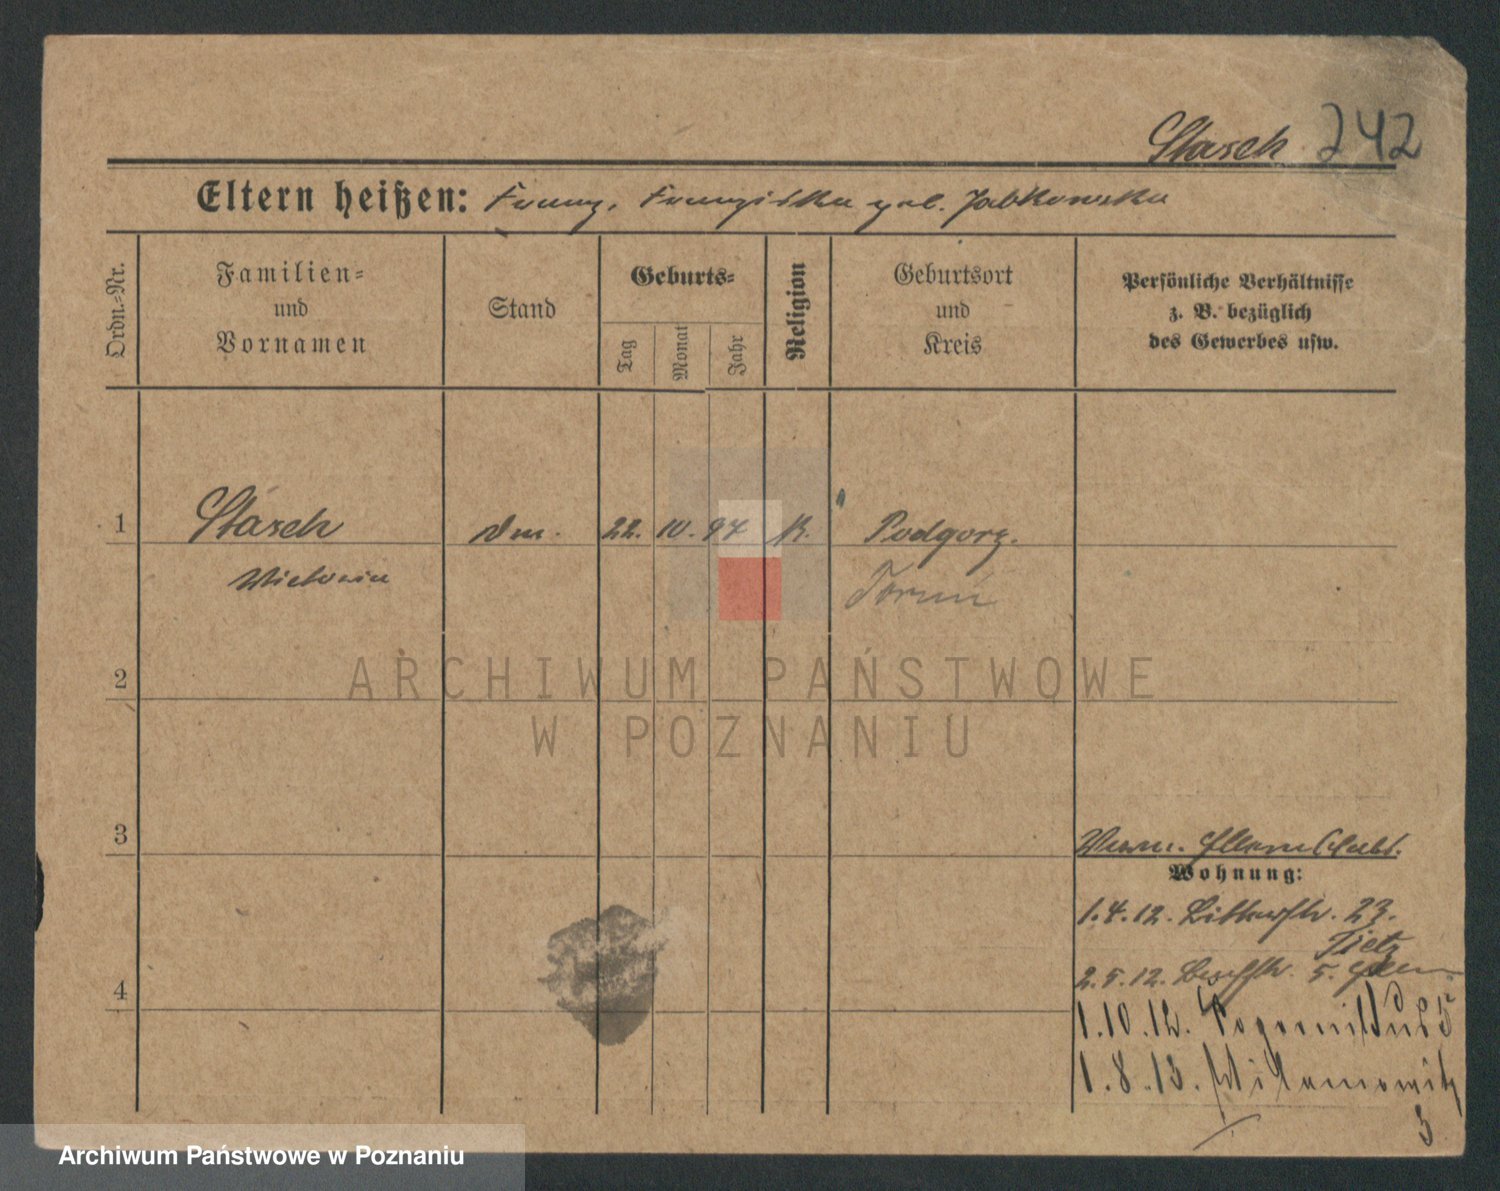 Stasch 242
Eltern heißen: Franz, Franziska geb. Jabkowska
Ordn.-Nr.
Familien-
und
Vornamen
Stand
Geburts-
Tag
Monat
Jahr
Religion
Geburtsort
und
Kreis
Persönliche Verhältnisse
z. B. bezüglich
des Gewerbes usw.
1 Stasch 22. 10. 94 K. Podgorz.
Victoria
Toruń
ARCHIWUM PAŃSTWOWE
W POZNANIU
2
3
Wohnung:
1.4.12. 23.
Tietz
2.5.12. 5.
4
1.10.12. 5
1.8.13.
3
Archiwum Państwowe w Poznaniu